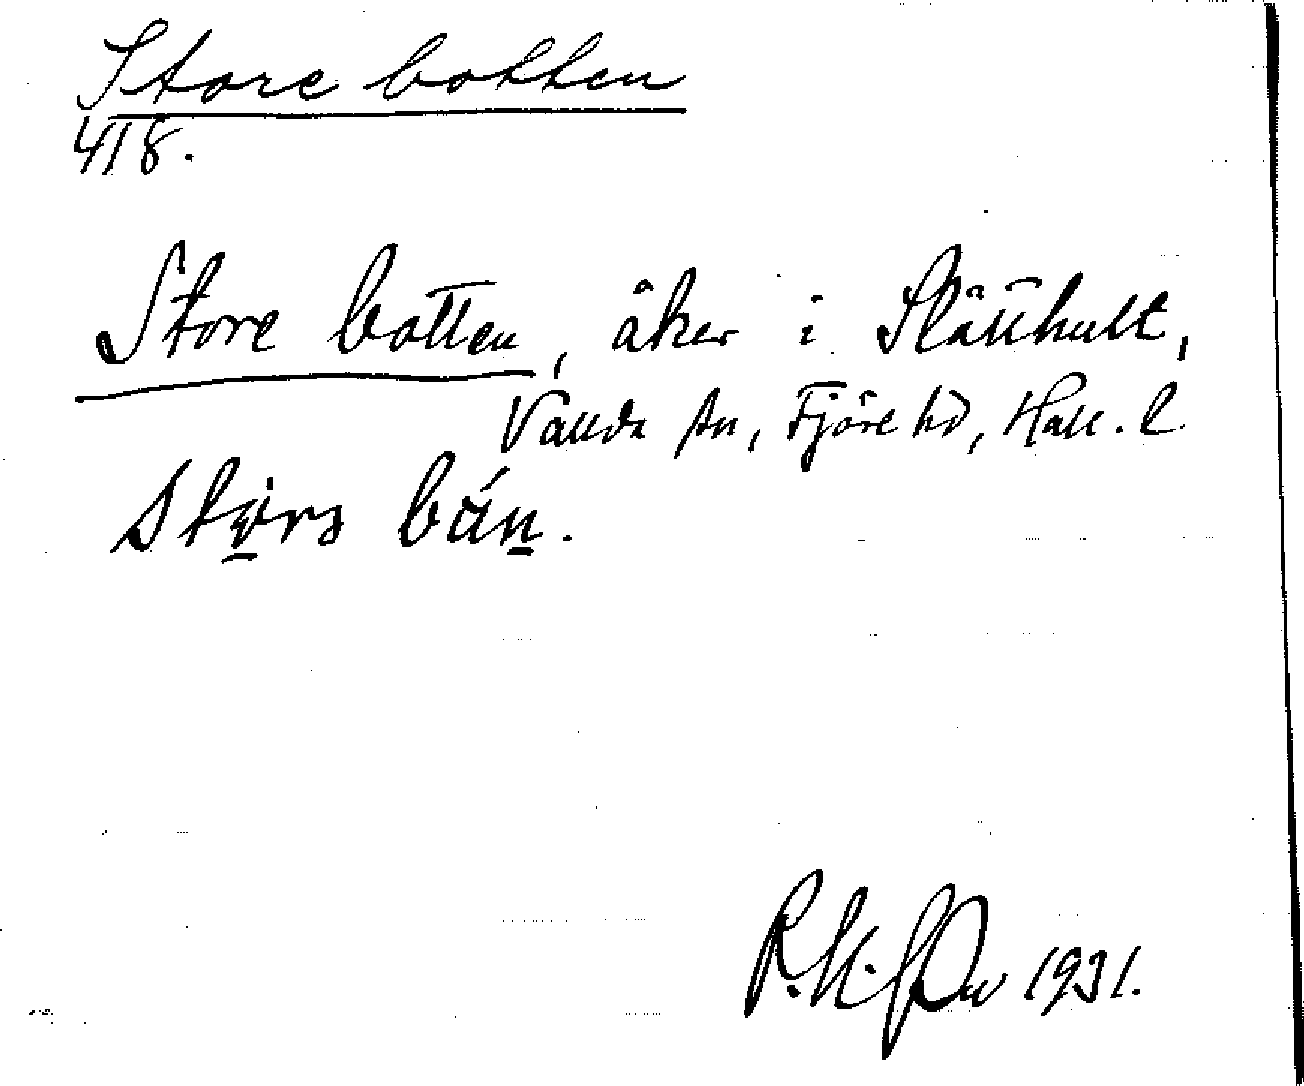 Store botten
418.
Store botten, åker i Slätthult,
Vallda sn, Fjäre hd, Hall. l.
bån.
1931.